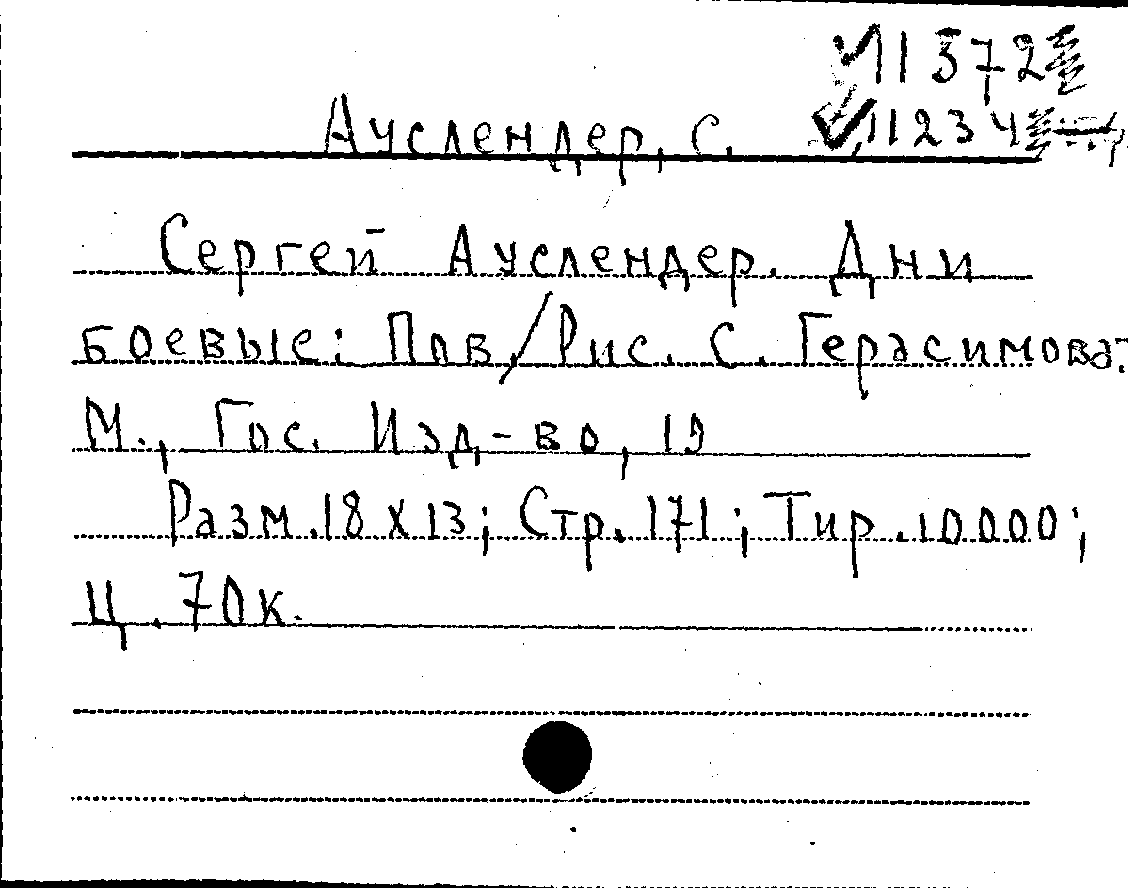 11572
Ауслендер, С. 11234
Сергей Ауслендер. Дни
боевые: Пов./Рис. С. Герасимова.
М., Гос. Изд-во, 19
Разм. 18х13; Стр. 171; Тир. 10000;
Ц. 70к.